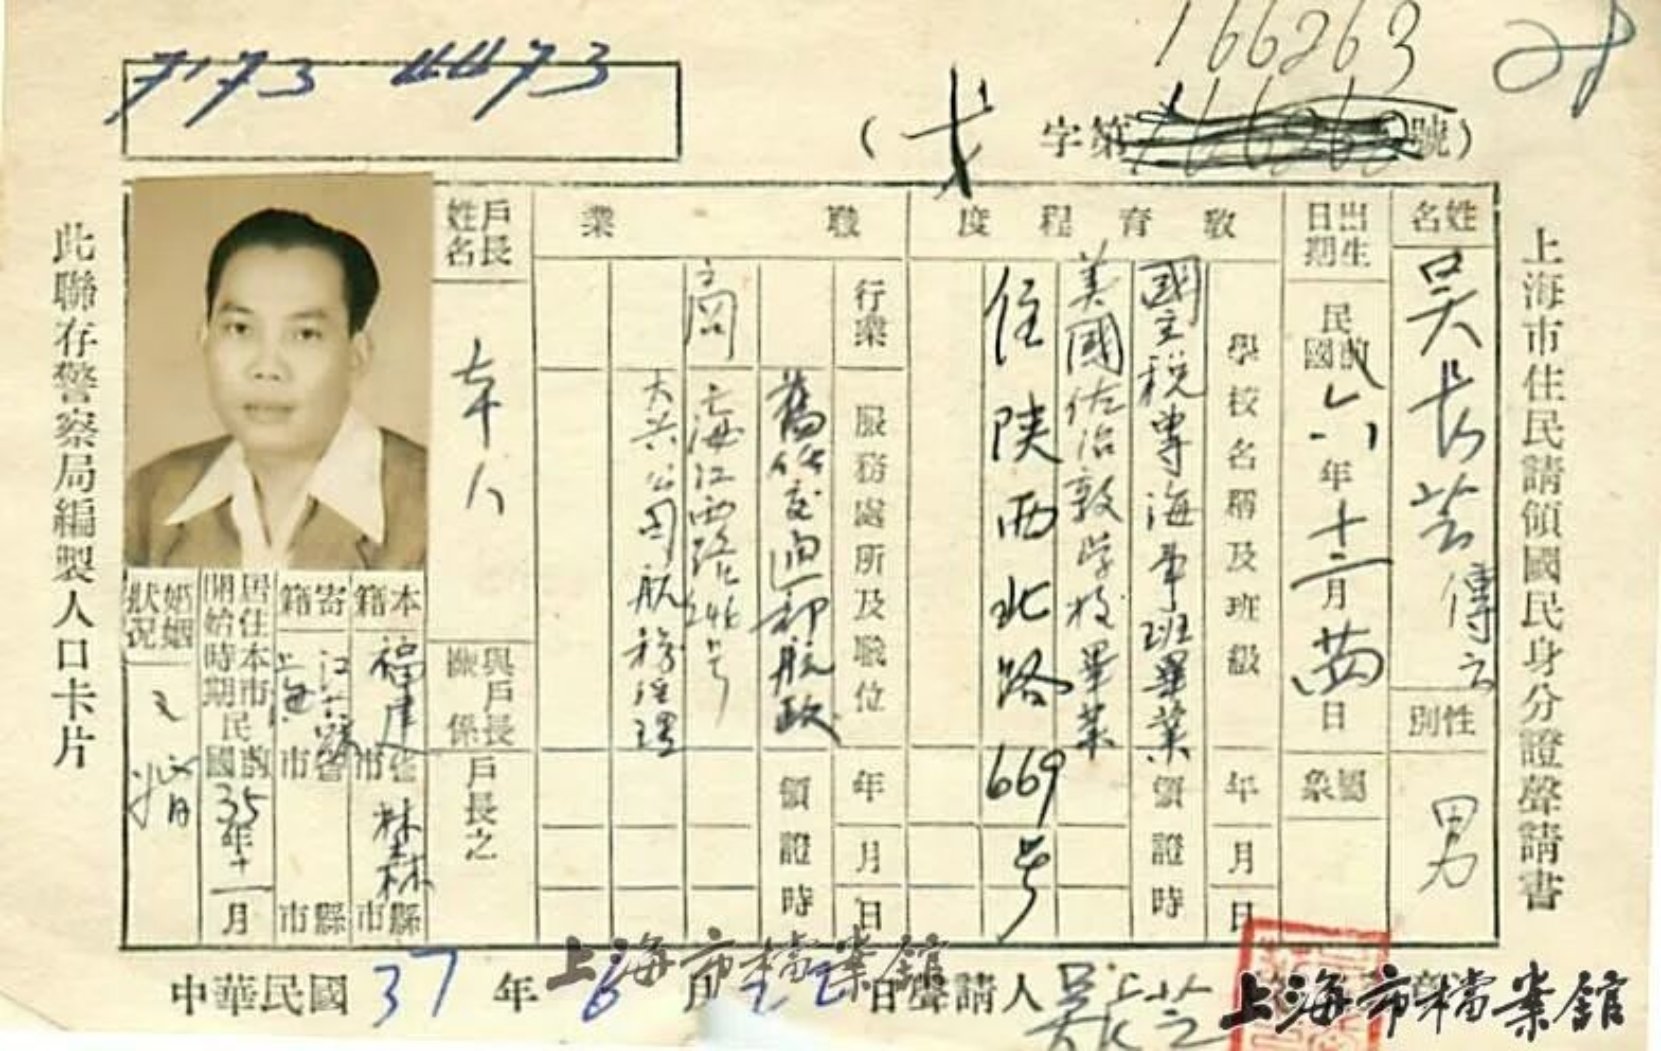 7173 4473
166263
28
(   字第   號)
上海市住民請領國民身分證聲請書
姓名
吳長芝
性別
男
出生日期
民國前
年十二月廿四日
圖象
教育程度
學校名稱及班級
年月日
領證時
國立稅專海事班畢業
美國佐治敦學校畢業
住陝西北路669号
職業
行業
服務處所及職位
年月日
領證時
舊任交通部航政
商
上海江西路246号
大興公司航務經理
戶長姓名
本人
與戶長關係
戶長之
本籍
福建省市
林森縣市
寄籍
江蘇省市
上海
縣市
居住本市開始時期
民國前35年十一月
婚姻狀況
已婚
此聯存警察局編製人口卡片
中華民國37年6月22日聲請人吳長芝
上海市檔案館
上海市檔案館